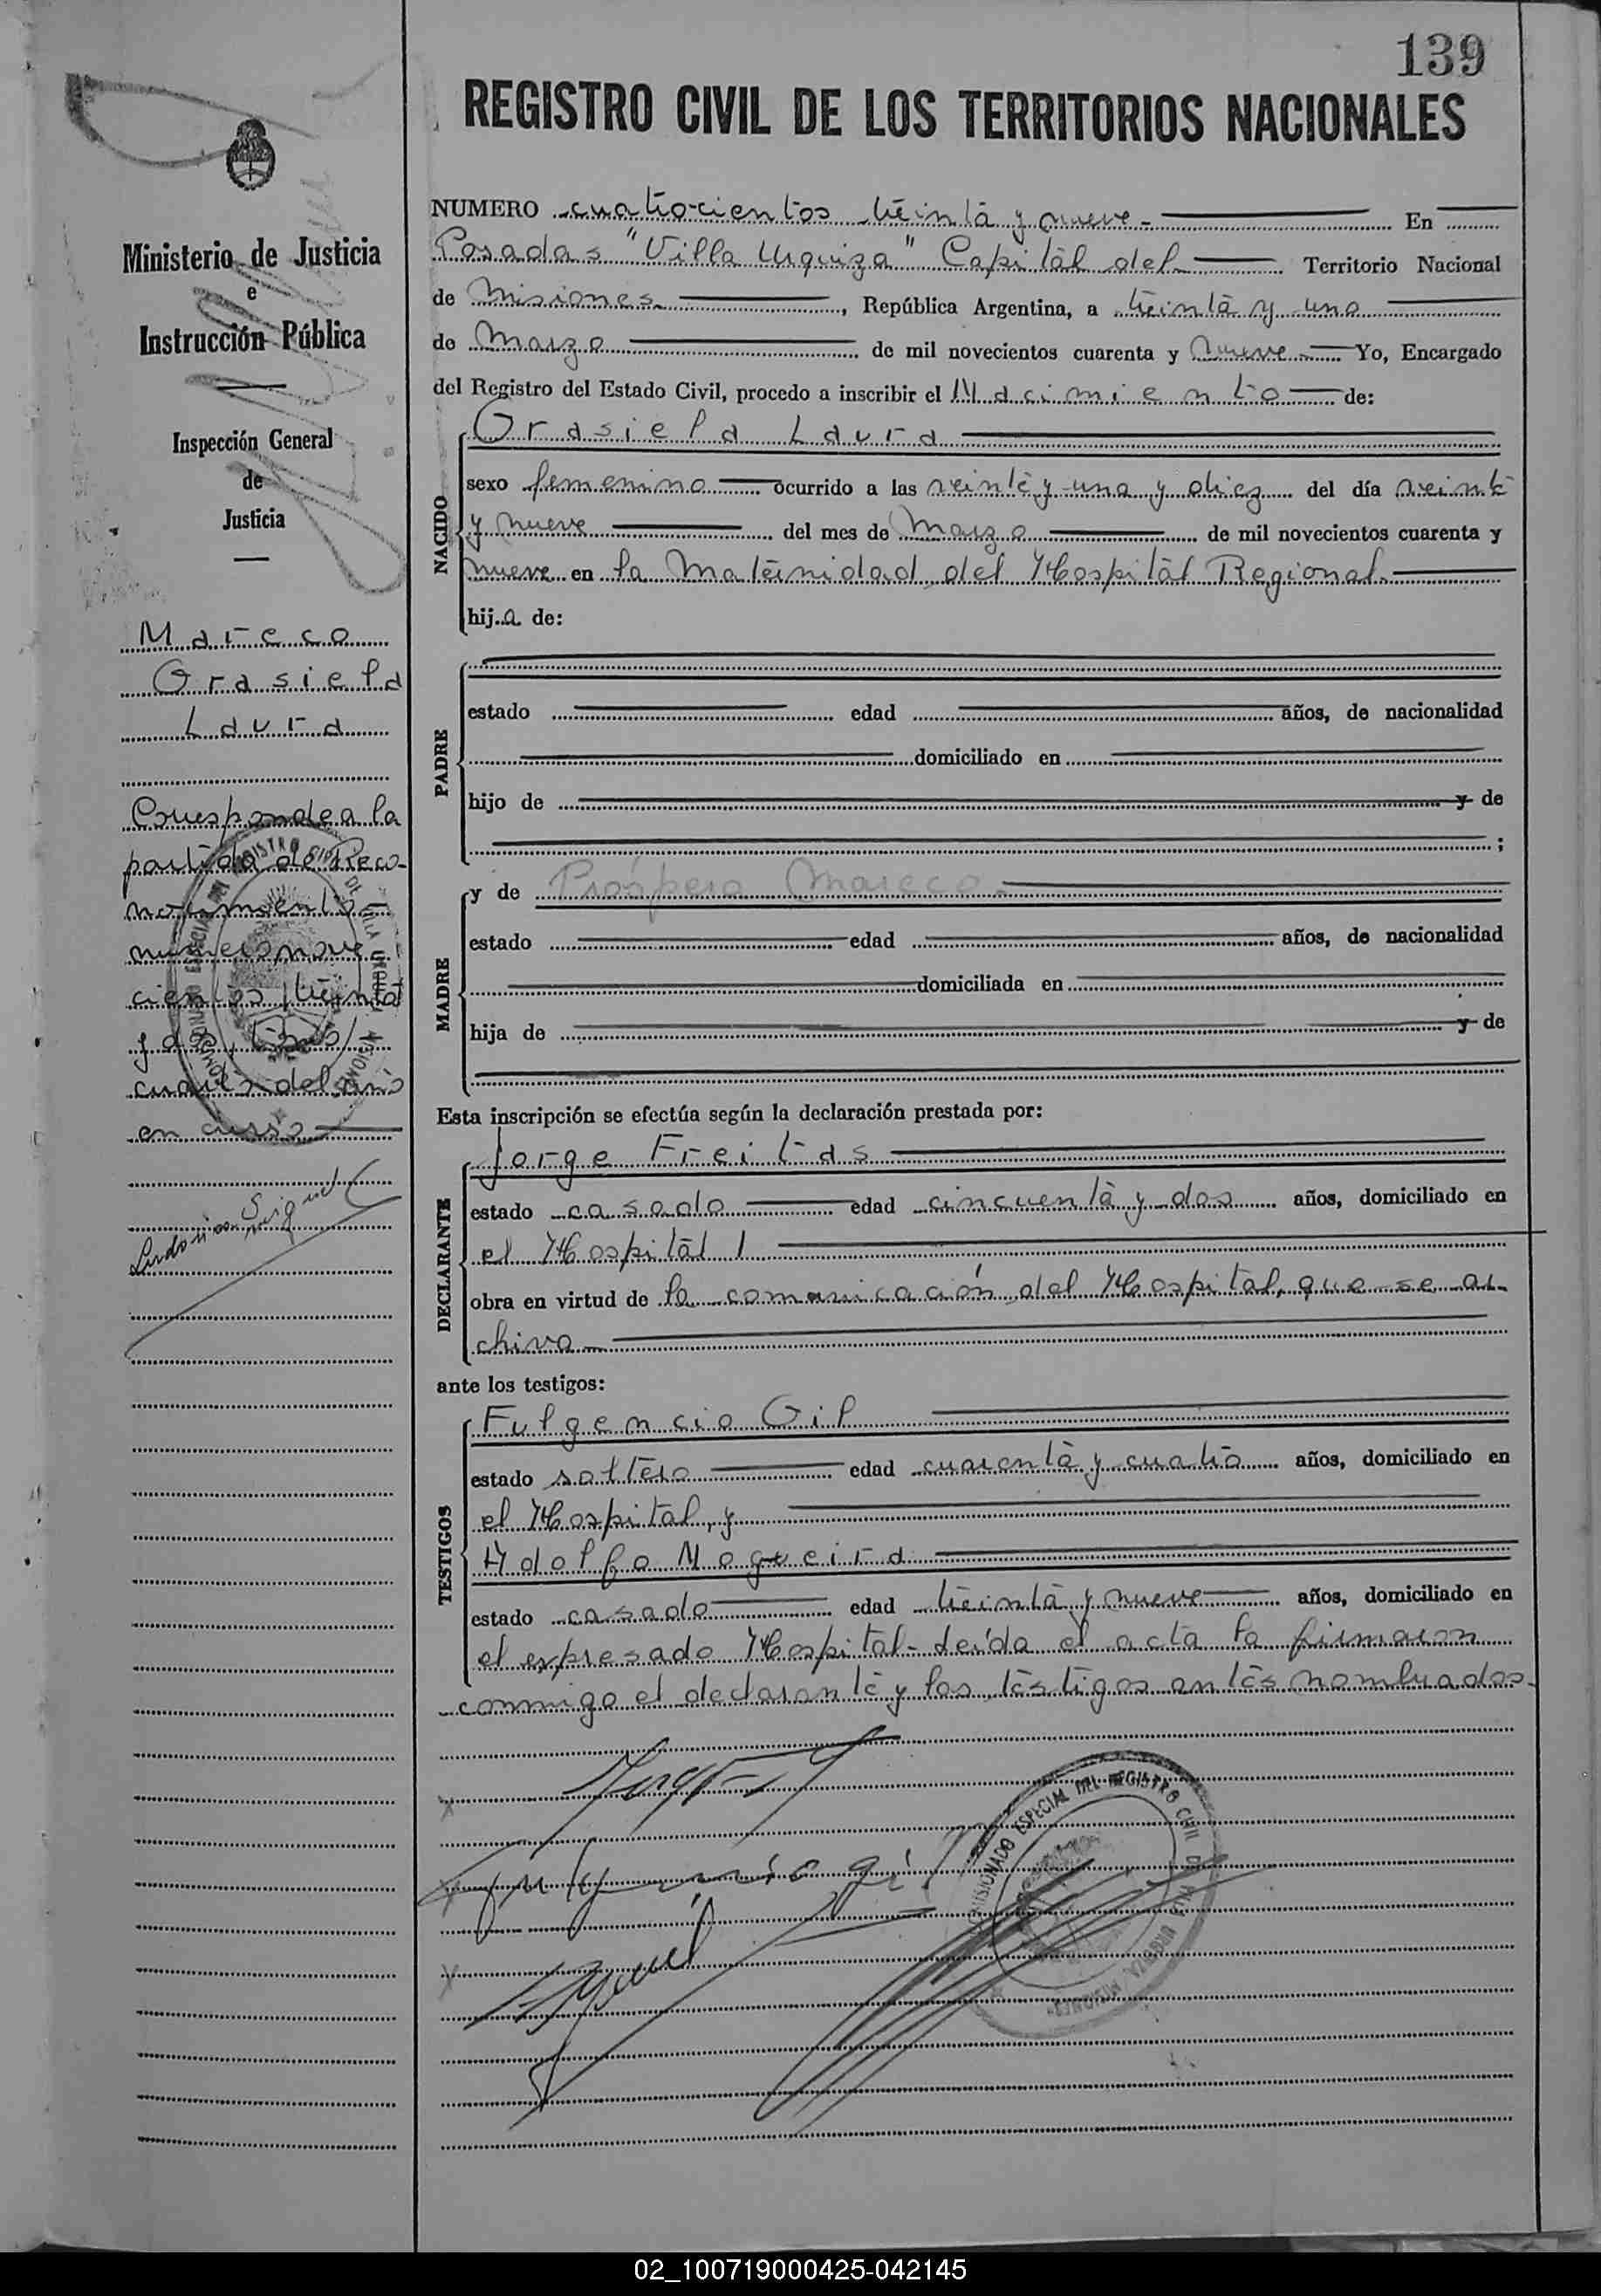 139
REGISTRO CIVIL DE LOS TERRITORIOS NACIONALES
Ministerio de Justicia
e
Instrucción Pública
Inspección General
de
Justicia
Mareco
Grasiela
Laura
Corresponde a la
partida de Reco-
nocimiento
numero nove
cientos treinta
y dos, tomo
cuarto del año
en curso
NUMERO cuatrocientos treinta y nueve - En
Posadas "Villa Urquiza" Capital del Territorio Nacional
de Misiones, República Argentina, a treinta y uno
de Marzo de mil novecientos cuarenta y nueve Yo, Encargado
del Registro del Estado Civil, procedo a inscribir el Nacimiento de:
NACIDO
Grasiela Laura
sexo femenino ocurrido a las veinte y una y diez del día veinte
y nueve del mes de Marzo de mil novecientos cuarenta y
nueve en la Maternidad del Hospital Regional
hija de:
PADRE
estado edad años, de nacionalidad
domiciliado en
hijo de y de
;
MADRE
y de Prospera Mareco
estado edad años, de nacionalidad
domiciliada en
hija de y de
Esta inscripción se efectúa según la declaración prestada por:
DECLARANTE
Jorge Freitas
estado casado edad cincuenta y dos años, domiciliado en
el Hospital
obra en virtud de la comunicación del Hospital, que se ar-
chiva
ante los testigos:
TESTIGOS
Fulgencio Gil
estado soltero edad cuarenta y cuatro años, domiciliado en
el Hospital, y
Adolfo Nogueira
estado casado edad treinta y nueve años, domiciliado en
el expresado Hospital - Leída el acta la firmaron
conmigo el declarante y los testigos antes nombrados.
COMISIONADO ESPECIAL DEL REGISTRO CIVIL DE VILLA URQUIZA MISIONES
02_100719000425-042145